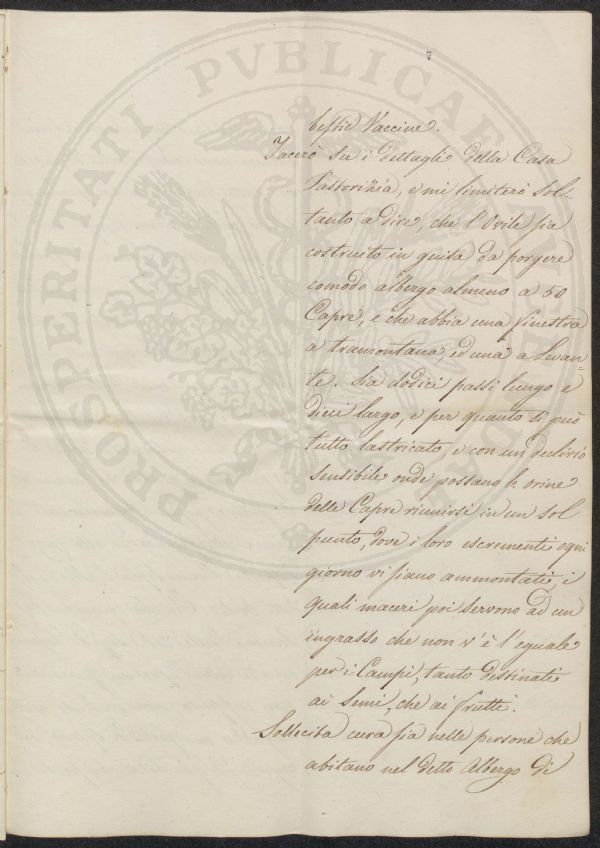 7
bestie Vaccine.
Tacerò su i dettagli della Casa
Pastorizia, e mi limiterò sol-
tanto a dire, che l'Ovile sia
costruito in guisa da porgere
comodo albergo almeno a 50
Capre, e che abbia una finestra
a tramontana ed una a Levan=
te. Sia dodici passi lungo e
dieci largo, e per quanto si può
tutto lastricato, e con un declivio
sensibile onde possano le orine
delle Capre riunirsi in un sol
punto, dove i loro escrementi ogni
giorno vi siano ammontati, i
quali maceri poi servono ad un
ingrasso che non v'è l'eguale
per i Campi, tanto destinati
ai Semi, che ai frutti.
Sollecita cura sia nelle persone che
abitano nel detto Albergo di
PROSPERITATI PVBLICAE